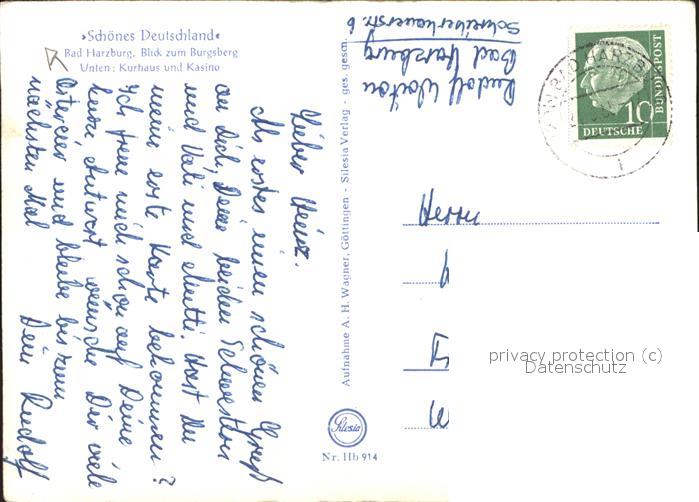 »Schönes Deutschland«
Bad Harzburg, Blick zum Burgsberg
Unten: Kurhaus und Kasino
Lieber Heinz.
Als erstes einen schönen Gruß
an Dich, Deine beiden Schwestern
und Vati und Mutti. Hast Du
meine erste Karte bekommen?
Ich freue mich schon auf Deine
liebe Antwort wünsche Dir viele
Ostereier und bleibe bis zum
nächsten Mal Dein Rudolf
Aufnahme A. H. Wagner, Göttingen - Silesia Verlag - ges. gesch.
Silesia
Nr. Hb 914
Rudolf
Bad Harzburg
Schreiberhauerstr. 6
BAD HARZB
10
DEUTSCHE
BUNDESPOST
Herrn
privacy protection (c)
Datenschutz